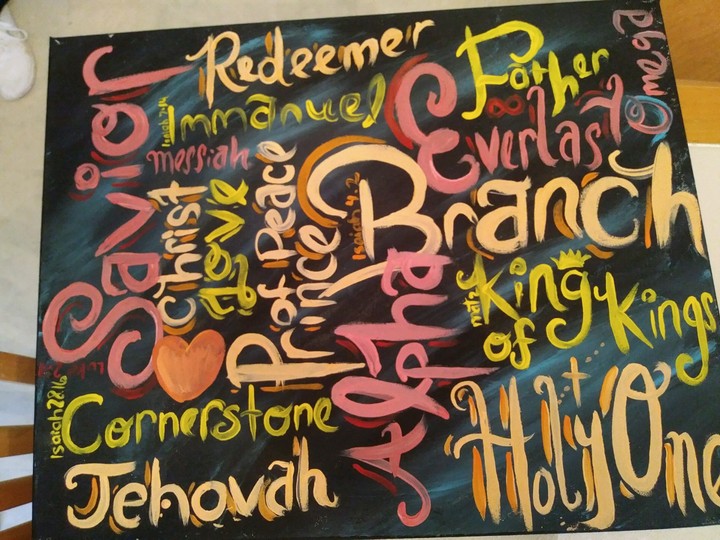 Redeemer
Father
Omega
Savior
Isaiah 7:14
Immanuel
Everlast
messiah
Christ
Love
Prince
of Peace
Isaiah 4:2
Branch
Alpha
King
of Kings
Isaiah 28:16
Cornerstone
Holy One
Jehovah